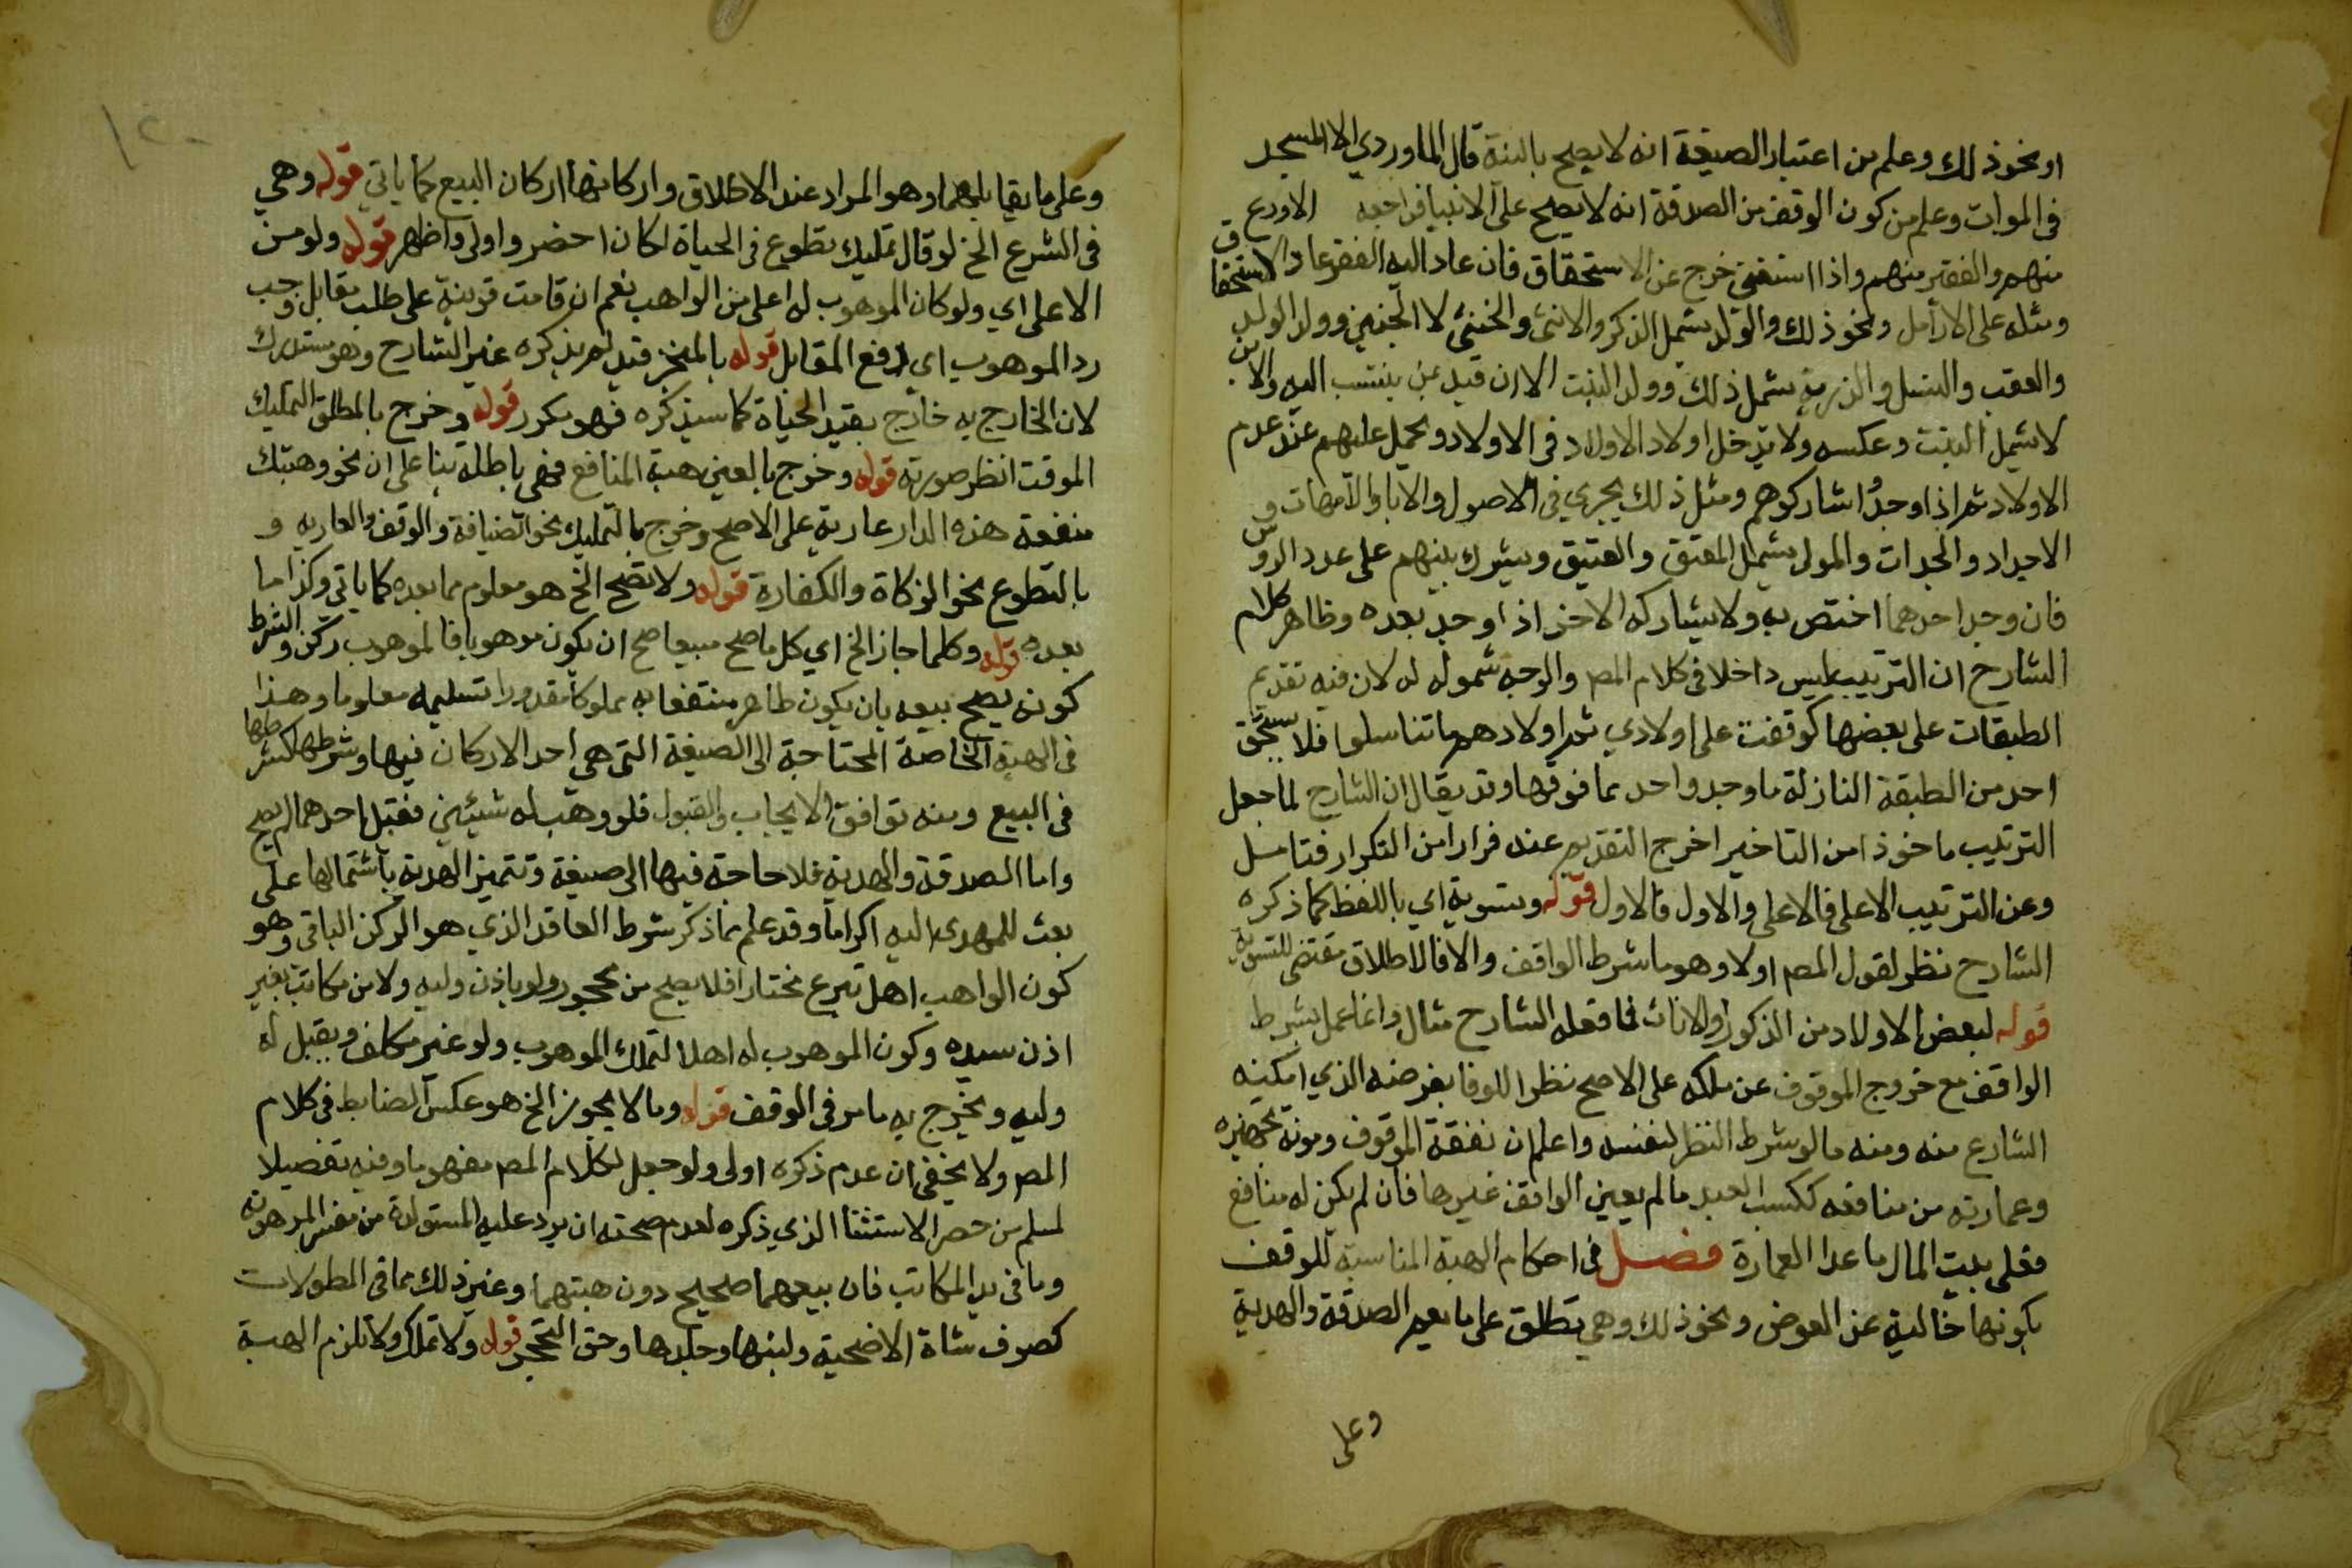 او نحو ذلك وعلم من اعتبار الصيغة انه لا يصح بالنية قال الماوردي الا المسجد
في الموات وعلم من كون الوقف من الصدقة انه لا يصح على الانبيا فراجعه الاورع
منهم والفقير منهم واذا استغنى خرج عن الاستحقاق فان عاد اليه الفقر عاد الاستحقاق
ومثله على الارامل ونحو ذلك والولد يشمل الذكر والانثى والخنثى لا الجنين وولد الولد
والعقب والنسل والذرية يشمل ذلك وولد البنت الا ان قيد بمن ينتسب اليه والابن
لا يشمل البنت وعكسه ولا يدخل اولاد الاولاد في الاولاد ويحمل عليهم عند عدم
الاولاد ثم اذا وجدوا شاركوهم ومثل ذلك يجري في الاصول والابا والامهات و
الاجداد والجدات والمولى يشمل المعتق والعتيق ويشرك بينهم على عدد الروس
فان وجد احدهما اختص به ولا يشاركه الاخر اذا وجد بعده وظاهر كلام
الشارح ان الترتيب ليس داخلا في كلام المص والوجه شموله له لان فيه تقديم
الطبقات على بعضها كوقفت على اولادي ثم اولادهم ما تناسلوا فلا يستحق
احد من الطبقة النازلة ما وجد واحد مما فوقها وقد يقال ان الشارح لما جعل
الترتيب ماخوذا من التاخير اخرج التقديم عنه فرارا من التكرار فتامل
وعن الترتيب الاعلى فالاعلى والاول فالاول قوله وتسوية اي باللفظ كما ذكره
الشارح نظر لقول المص اولا وهو ما شرط الواقف والا فالاطلاق مقتضى للتسوية
قوله لبعض الاولاد من الذكور والاناث فما فعله الشارح مثال وانما عمل بشرط
الواقف مع خروج الموقوف عن ملكه على الاصح نظرا للوفا بغرضه الذي امكنه
الشارع منه ومنه ما لو شرط النظر لنفسه واعلم ان نفقة الموقوف ومونة تجهيزه
وعمارته من منافعه ككسب العبد ما لم يعين الواقف غيرها فان لم يكن له منافع
فعلى بيت المال ما عدا العمارة فصل في احكام الهبة المناسبة للوقف
بكونها خالية عن العوض ونحو ذلك وهي تطلق على ما يعم الصدقة والهدية
وعلى
١٢٠
وعلى ما يقابلهما وهو المراد عند الاطلاق واركانها اركان البيع كما ياتي قوله وهي
في الشرع الخ لو قال تمليك تطوع في الحياة لكان احضر واولى واظهر قوله ولو من
الاعلى اي ولو كان الموهوب له اعلى من الواهب نعم ان قامت قرينة على طلب مقابل وجب
رد الموهوب اي او دفع المقابل قوله بالمنجز قيد لم يذكره غير الشارح وهو مستدرك
لان الخارج به خارج بقيد الحياة كما سيذكره فهو مكرر قوله وخرج بالمطلق التمليك
الموقت انظر صورته قوله وخرج بالعين هبة المنافع فهي باطلة بنا على ان نحو وهبتك
منفعة هذه الدار عارية على الاصح وخرج بالتمليك نحو الضيافة والوقف والعارية و
بالتطوع نحو الزكاة والكفارة قوله ولا تصح الخ هو معلوم مما بعده كما ياتي وكذا ما
بعده قوله وكلما جاز الخ اي كل ما صح مبيعا صح ان يكون موهوبا فالموهوب ركن والشرط
كونه يصح بيعه بان يكون طاهر منتفعا به مملوكا مقدورا تسليمه معلوما وهذا
في الهبة الخاصة المحتاجة الى الصيغة التي هي احد الاركان فيها وشرطها كشرطها
في البيع ومنه توافق الايجاب والقبول فلو وهب له شيئين فقبل احدهما لم يصح
واما الصدقة والهدية فلا حاجة فيها الى صيغة وتتميز الهدية باشتمالها على
بعث للمهدى اليه اكراما وقد علم مما ذكر شرط العاقد الذي هو الركن الباقي وهو
كون الواهب اهل تبرع مختارا فلا يصح من محجور ولو باذن وليه ولا من مكاتب بغير
اذن سيده وكون الموهوب له اهلا لتملك الموهوب ولو غير مكلف ويقبل له
وليه ويخرج به ما مر في الوقف قوله وما لا يجوز الخ هو عكس الضابط في كلام
المص ولا يخفى ان عدم ذكره اولى ولو جعل لكلام المص مفهوما وفيه تفصيلا
لسلم من حصر الاستثنا الذي ذكره لعدم صحته ان يرد عليه المستولدة من معسر المرهونة
وما في يد المكاتب فان بيعهما صحيح دون هبتهما وغير ذلك مما في المطولات
كصوف شاة الاضحية ولبنها وجلدها وحق التحجر قوله ولا تملك ولا تلزم الهبة